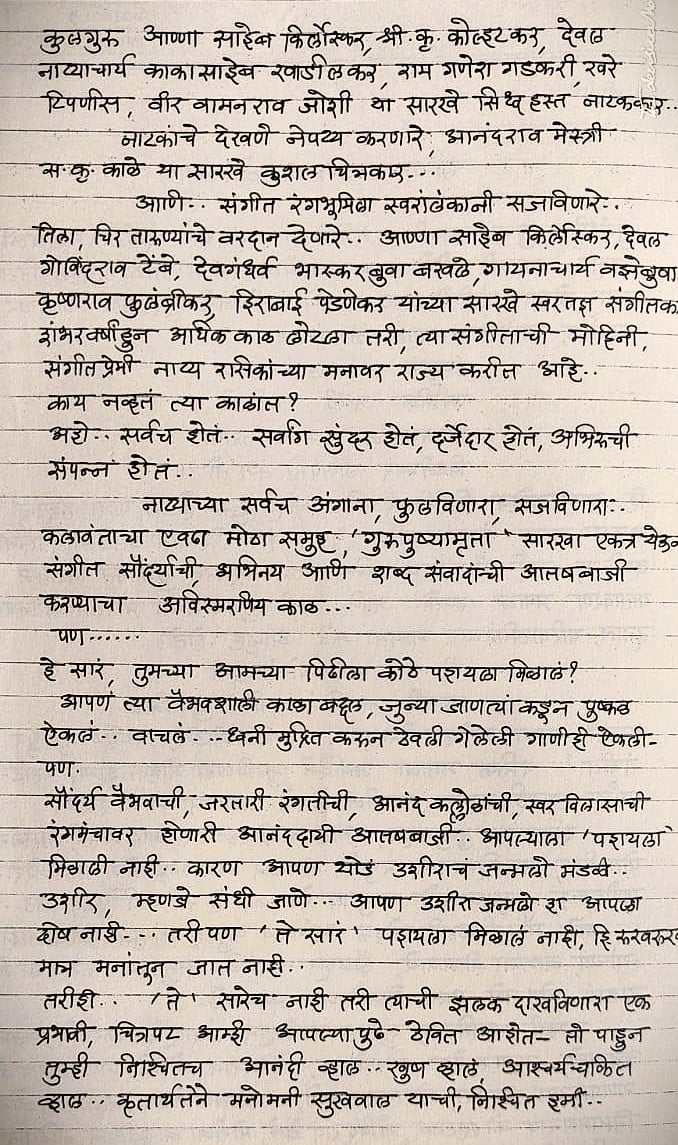 कुलगुरू आण्णा साहेब किर्लोस्कर, श्री. कृ. कोल्हटकर, देवल
नाट्याचार्य काकासाहेब खाडीलकर, राम गणेश गडकरी, खरे
टिपणीस, वीर वामनराव जोशी या सारखे सिध्द हस्त नाटककार..
नाटकांचे देखणे नेपथ्य करणारे, आनंदराव मेस्त्री
स. कृ. काळे या सारखे कुशल चित्रकार...
आणि.. संगीत रंगभूमिला स्वरालंकानी सजविणारे..
तिला, चिर तारुण्यांचे वरदान देणारे.. आण्णा साहेब किर्लोस्कर, देवल
गोविंदराव टेंबे, देवगंधर्व भास्करबुवा बखले, गायनाचार्य वझेबुवा
कृष्णराव फुलंब्रीकर, हिराबाई पेडणेकर यांच्या सारखे स्वरतज्ञ संगीतक
शंभरवर्षाहुन अधिक काळ लोटला तरी, त्या संगीताची मोहिनी,
संगीत प्रेमी नाट्य रासिकांच्या मनावर राज्य करीत आहे..
काय नव्हतं त्या काळांत?
अहो.. सर्वच होतं.. सर्वांग सुंदर होतं, दर्जेदार होतं, अभिरुची
संपन्न होतं..
नाट्याच्या सर्वच अंगाना, फुलविणारा, सजविणारा..
कलावंताचा एवढा मोठा समुह, 'गुरुपुष्यामृता' सारखा एकत्र येऊन
संगीत सौंदर्याची, अभिनय आणि शब्द संवादांची आतषबाजी
करण्याचा अविस्मरणिय काळ...
पण......
हे सारं, तुमच्या आमच्या पिढीला कोठे पहायला मिळालं?
आपण त्या वैभवशाली काळा बद्दल, जुन्या जाणत्यां कडून पुष्कळ
ऐकलं.. वाचलं... ध्वनी मुद्रित करून ठेवली गेलेली गाणीही ऐकली-
पण.
सौंदर्य वैभवाची, जरतारी रंगतीची, आनंद कल्लोळांची, स्वर विलासाची
रंगमंचावर होणारी आनंददायी आतषबाजी.. आपल्याला 'पहायला'
मिळाली नाही.. कारण आपण थोडं उशीराचं जन्मलो मंडळी..
उशीर, म्हणजे संधी जाणे... आपण उशीरा जन्मलो हा आपला
दोष नाही... तरी पण 'ते सारं' पहायला मिळालं नाही, हि रुखरुख
मात्र मनांतून जात नाही..
तरीही.. 'ते' सारेच नाही तरी त्याची झलक दाखविणारा एक
प्रभावी, चित्रपट आम्ही आपल्या पुढे ठेवित आहोत- तो पाहुन
तुम्ही निश्चितच आनंदी व्हाल.. खुष व्हाल, आश्चर्यचकित
व्हाल.. कृतार्थतेने मनोमनी सुखवाल याची, निश्चित हमी..